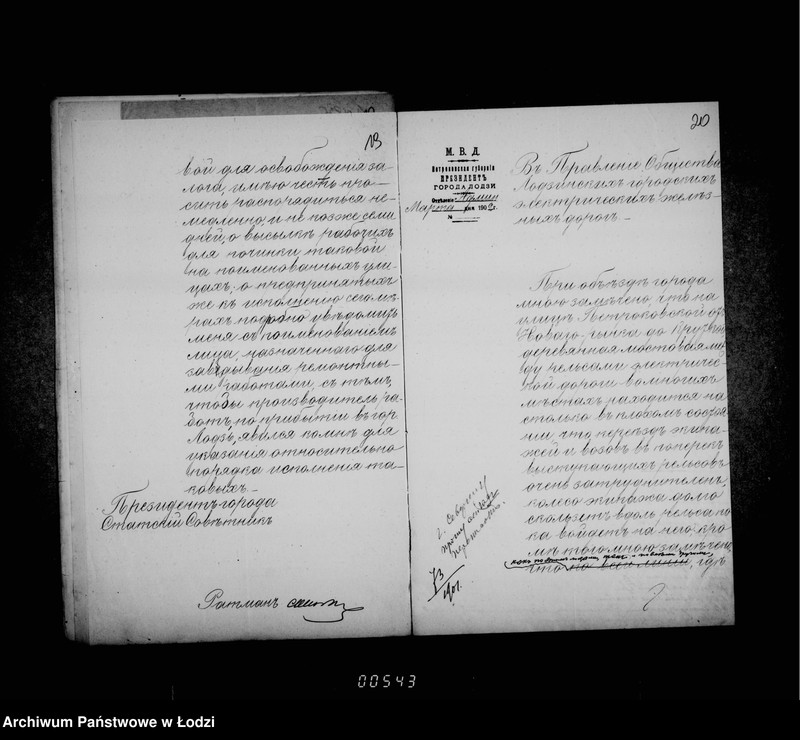 13
вой для освобожденія за-
лога, имѣю честь про-
сить распорядиться не-
медленно, и не позже семи
дней, о высылкѣ рабочихъ
для починки таковой
на поименованныхъ ули-
цахъ, о предпринятыхъ
же къ исполненію сего мѣ-
рахъ подробно увѣдомить
меня съ поименованіемъ
лица, назначеннаго для
завѣдыванія ремонтны-
ми работами, съ тѣмъ,
чтобы производитель ра-
ботъ, по прибытіи въ гор.
Лодзь, явился ко мнѣ для
указанія относительно
порядка исполненія та-
ковыхъ.
Президентъ города
Статскій Совѣтникъ
Ратманъ
20
М. В. Д.
Петроковская губернія
ПРЕЗИДЕНТЪ
ГОРОДА ЛОДЗИ
Отдѣленіе
Марта дня 190 г.
№
Въ Правленіе Общества
Лодзинскихъ городскихъ
электрическихъ желѣз-
ныхъ дорогъ.
При объѣздѣ города
мною замѣчено, что на
улицѣ Петроковской отъ
Новаго рынка до
деревянная мостовая меж
ду рельсами электричес-
кой дороги во многихъ
мѣстахъ находится на
столько въ плохомъ состоя
ніи, что переѣздъ экипа-
жей и возовъ въ поперекъ
выступающихъ рельсовъ
очень затруднителенъ,
колесо экипажа долго
скользитъ вдоль рельса по
ка войдетъ на него кро
мѣ того мною замѣчено,
что на всей линіи, гдѣ
00543
Archiwum Państwowe w Łodzi